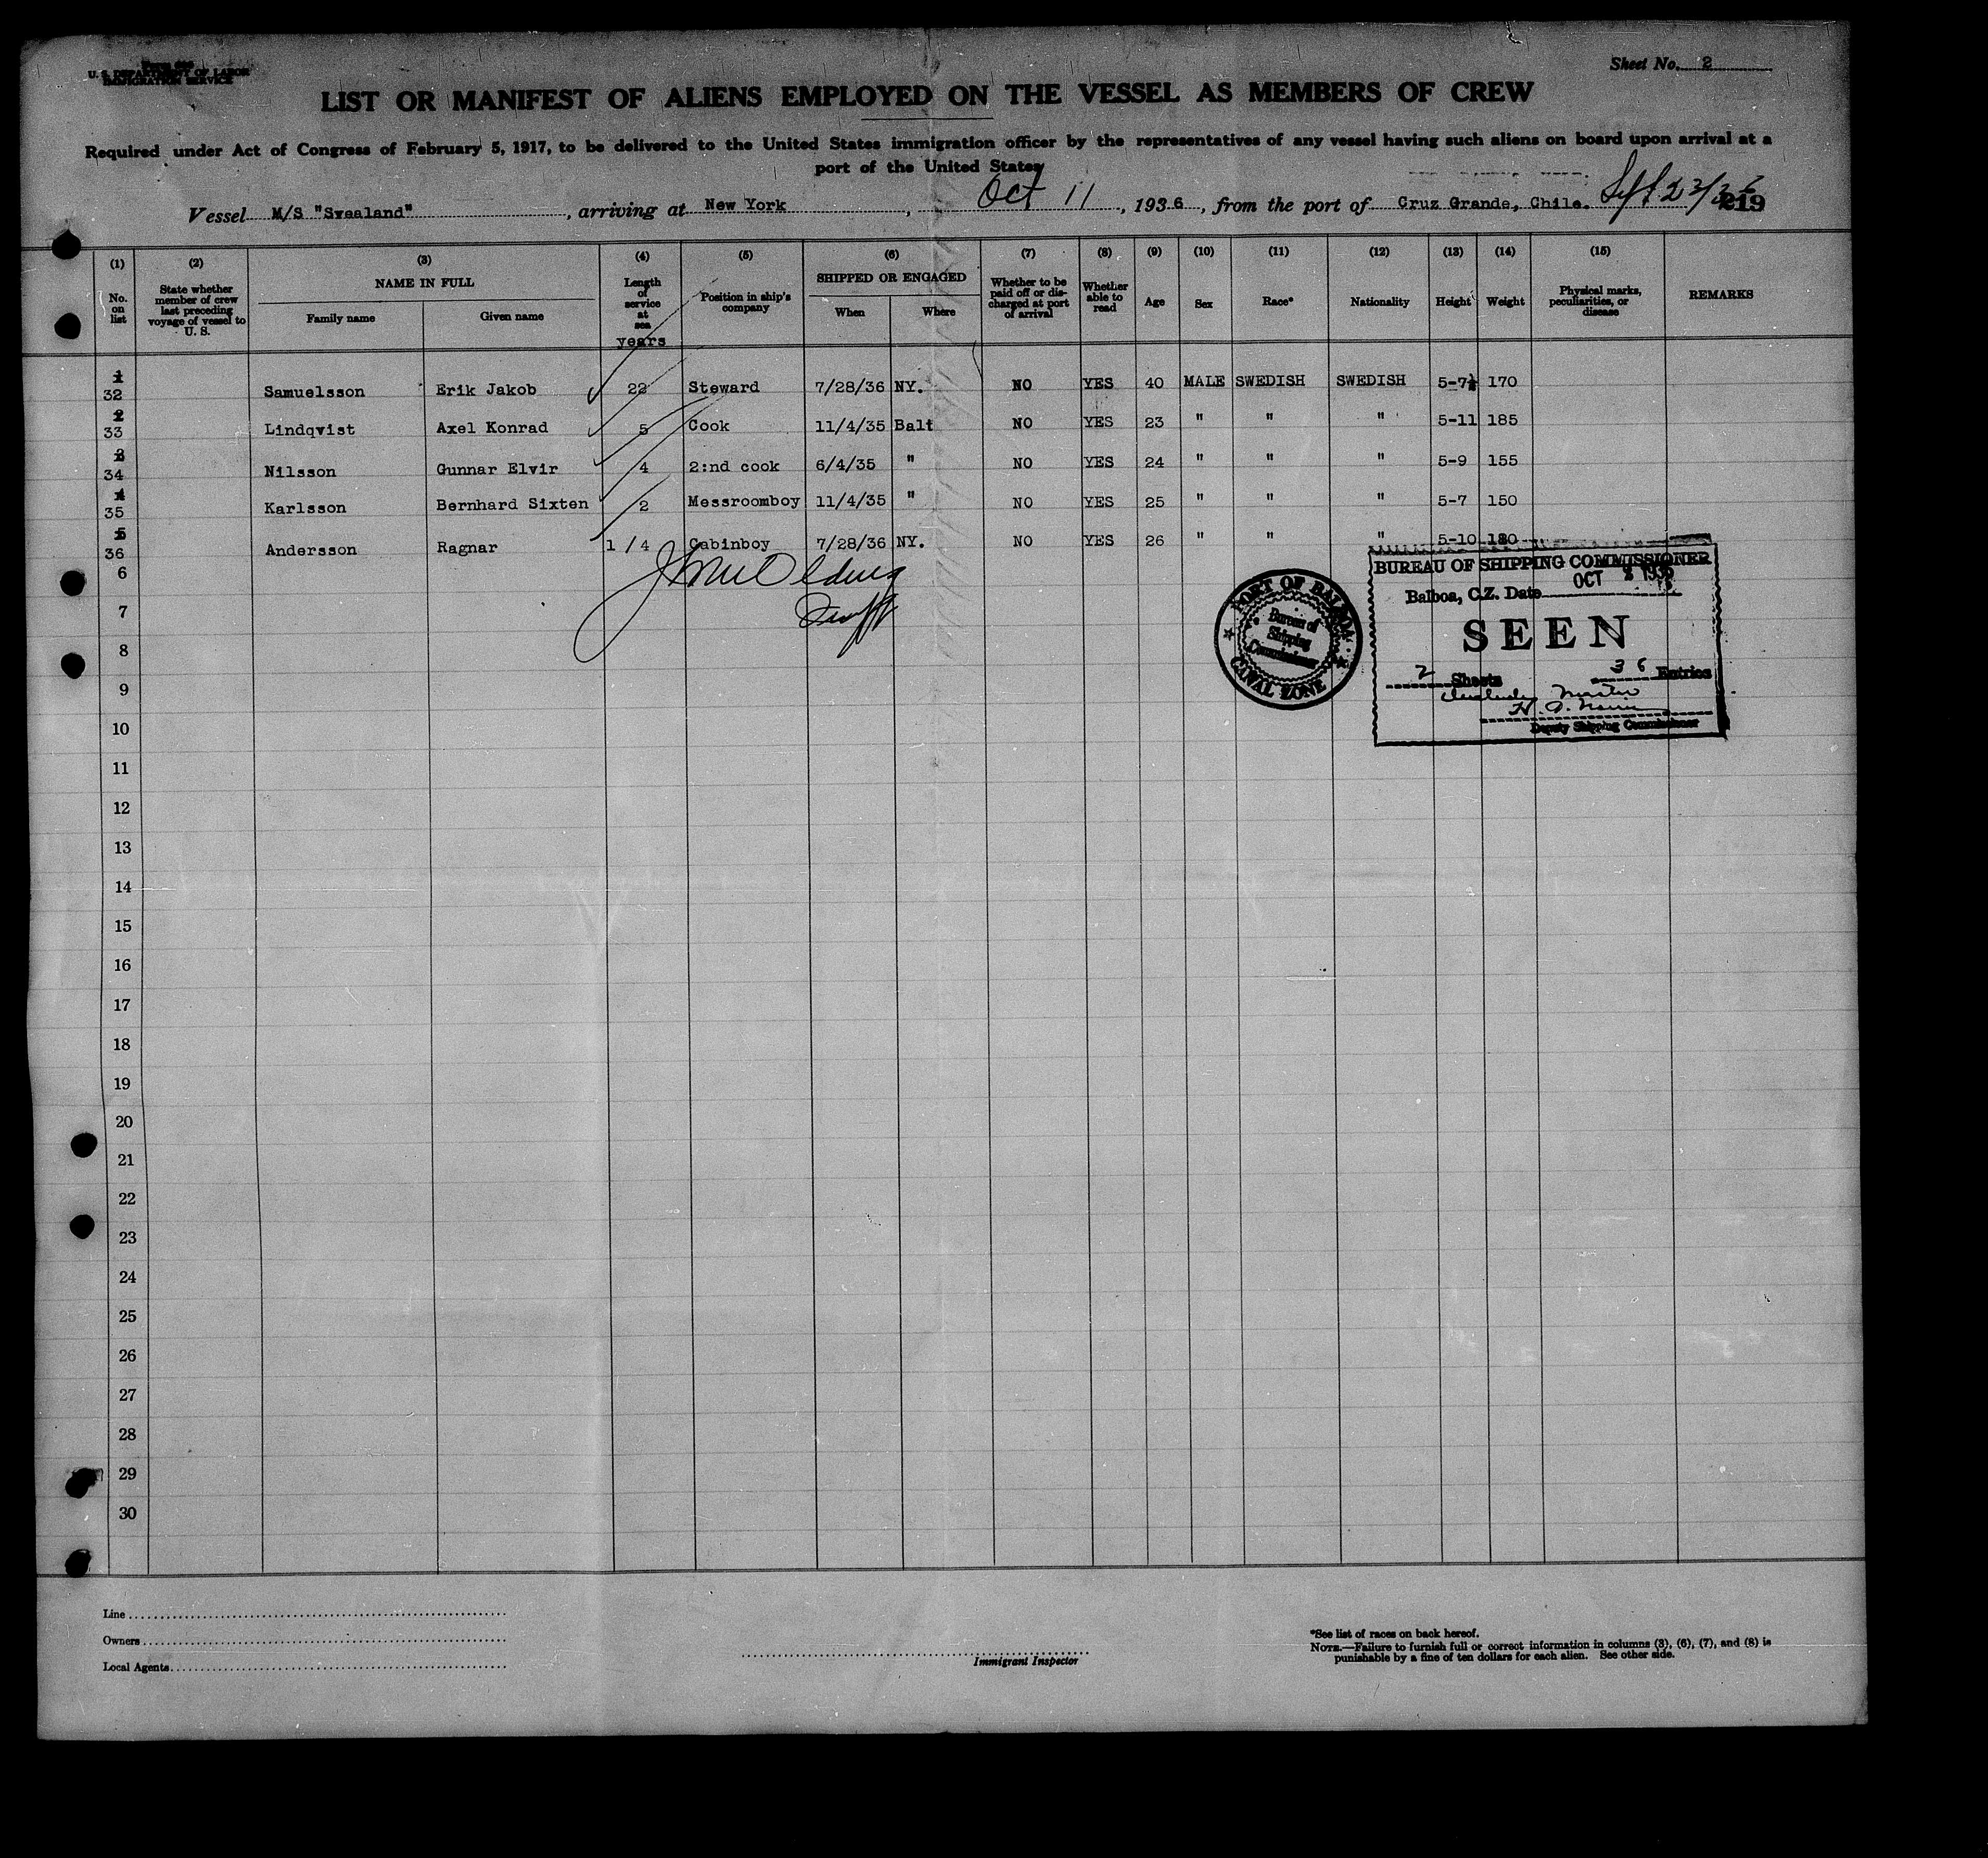 U. S. DEPARTMENT OF LABOR
IMMIGRATION SERVICE
Sheet No. 2
LIST OR MANIFEST OF ALIENS EMPLOYED ON THE VESSEL AS MEMBERS OF CREW
Required under Act of Congress of February 5, 1917, to be delivered to the United States immigration officer by the representatives of any vessel having such aliens on board upon arrival at a
port of the United States
Vessel M/S "Svealand", arriving at New York, Oct 11, 1936, from the port of Cruz Grande, Chile. Sept 23/36
219
(1) (2) (3) (4) (5) (6) (7) (8) (9) (10) (11) (12) (13) (14) (15)
No. on list State whether member of crew last preceding voyage of vessel to U. S. NAME IN FULL Family name Given name Length of service at sea years Position in ship's company SHIPPED OR ENGAGED When Where Whether to be paid off or discharged at port of arrival Whether able to read Age Sex Race* Nationality Height Weight Physical marks, peculiarities, or disease REMARKS
1
32 Samuelsson Erik Jakob 22 Steward 7/28/36 NY. NO YES 40 MALE SWEDISH SWEDISH 5-7½ 170
2
33 Lindqvist Axel Konrad 5 Cook 11/4/35 Balt NO YES 23 " " " 5-11 185
3
34 Nilsson Gunnar Elvir 4 2:nd cook 6/4/35 " NO YES 24 " " " 5-9 155
4
35 Karlsson Bernhard Sixten 2 Messroomboy 11/4/35 " NO YES 25 " " " 5-7 150
5
36 Andersson Ragnar 1/4 Cabinboy 7/28/36 NY. NO YES 26 " " " 5-10 180
6
7
8
9
10
11
12
13
14
15
16
17
18
19
20
21
22
23
24
25
26
27
28
29
30
PORT OF BALBOA
Bureau of
Shipping
Commissioner
CANAL ZONE
BUREAU OF SHIPPING COMMISSIONER
Balboa, C.Z. Date OCT 2 1936
SEEN
2 Sheets 36 Entries
Deputy Shipping Commissioner
Line
Owners
Local Agents
Immigrant Inspector
*See list of races on back hereof.
NOTE.—Failure to furnish full or correct information in columns (3), (6), (7), and (8) is
punishable by a fine of ten dollars for each alien. See other side.